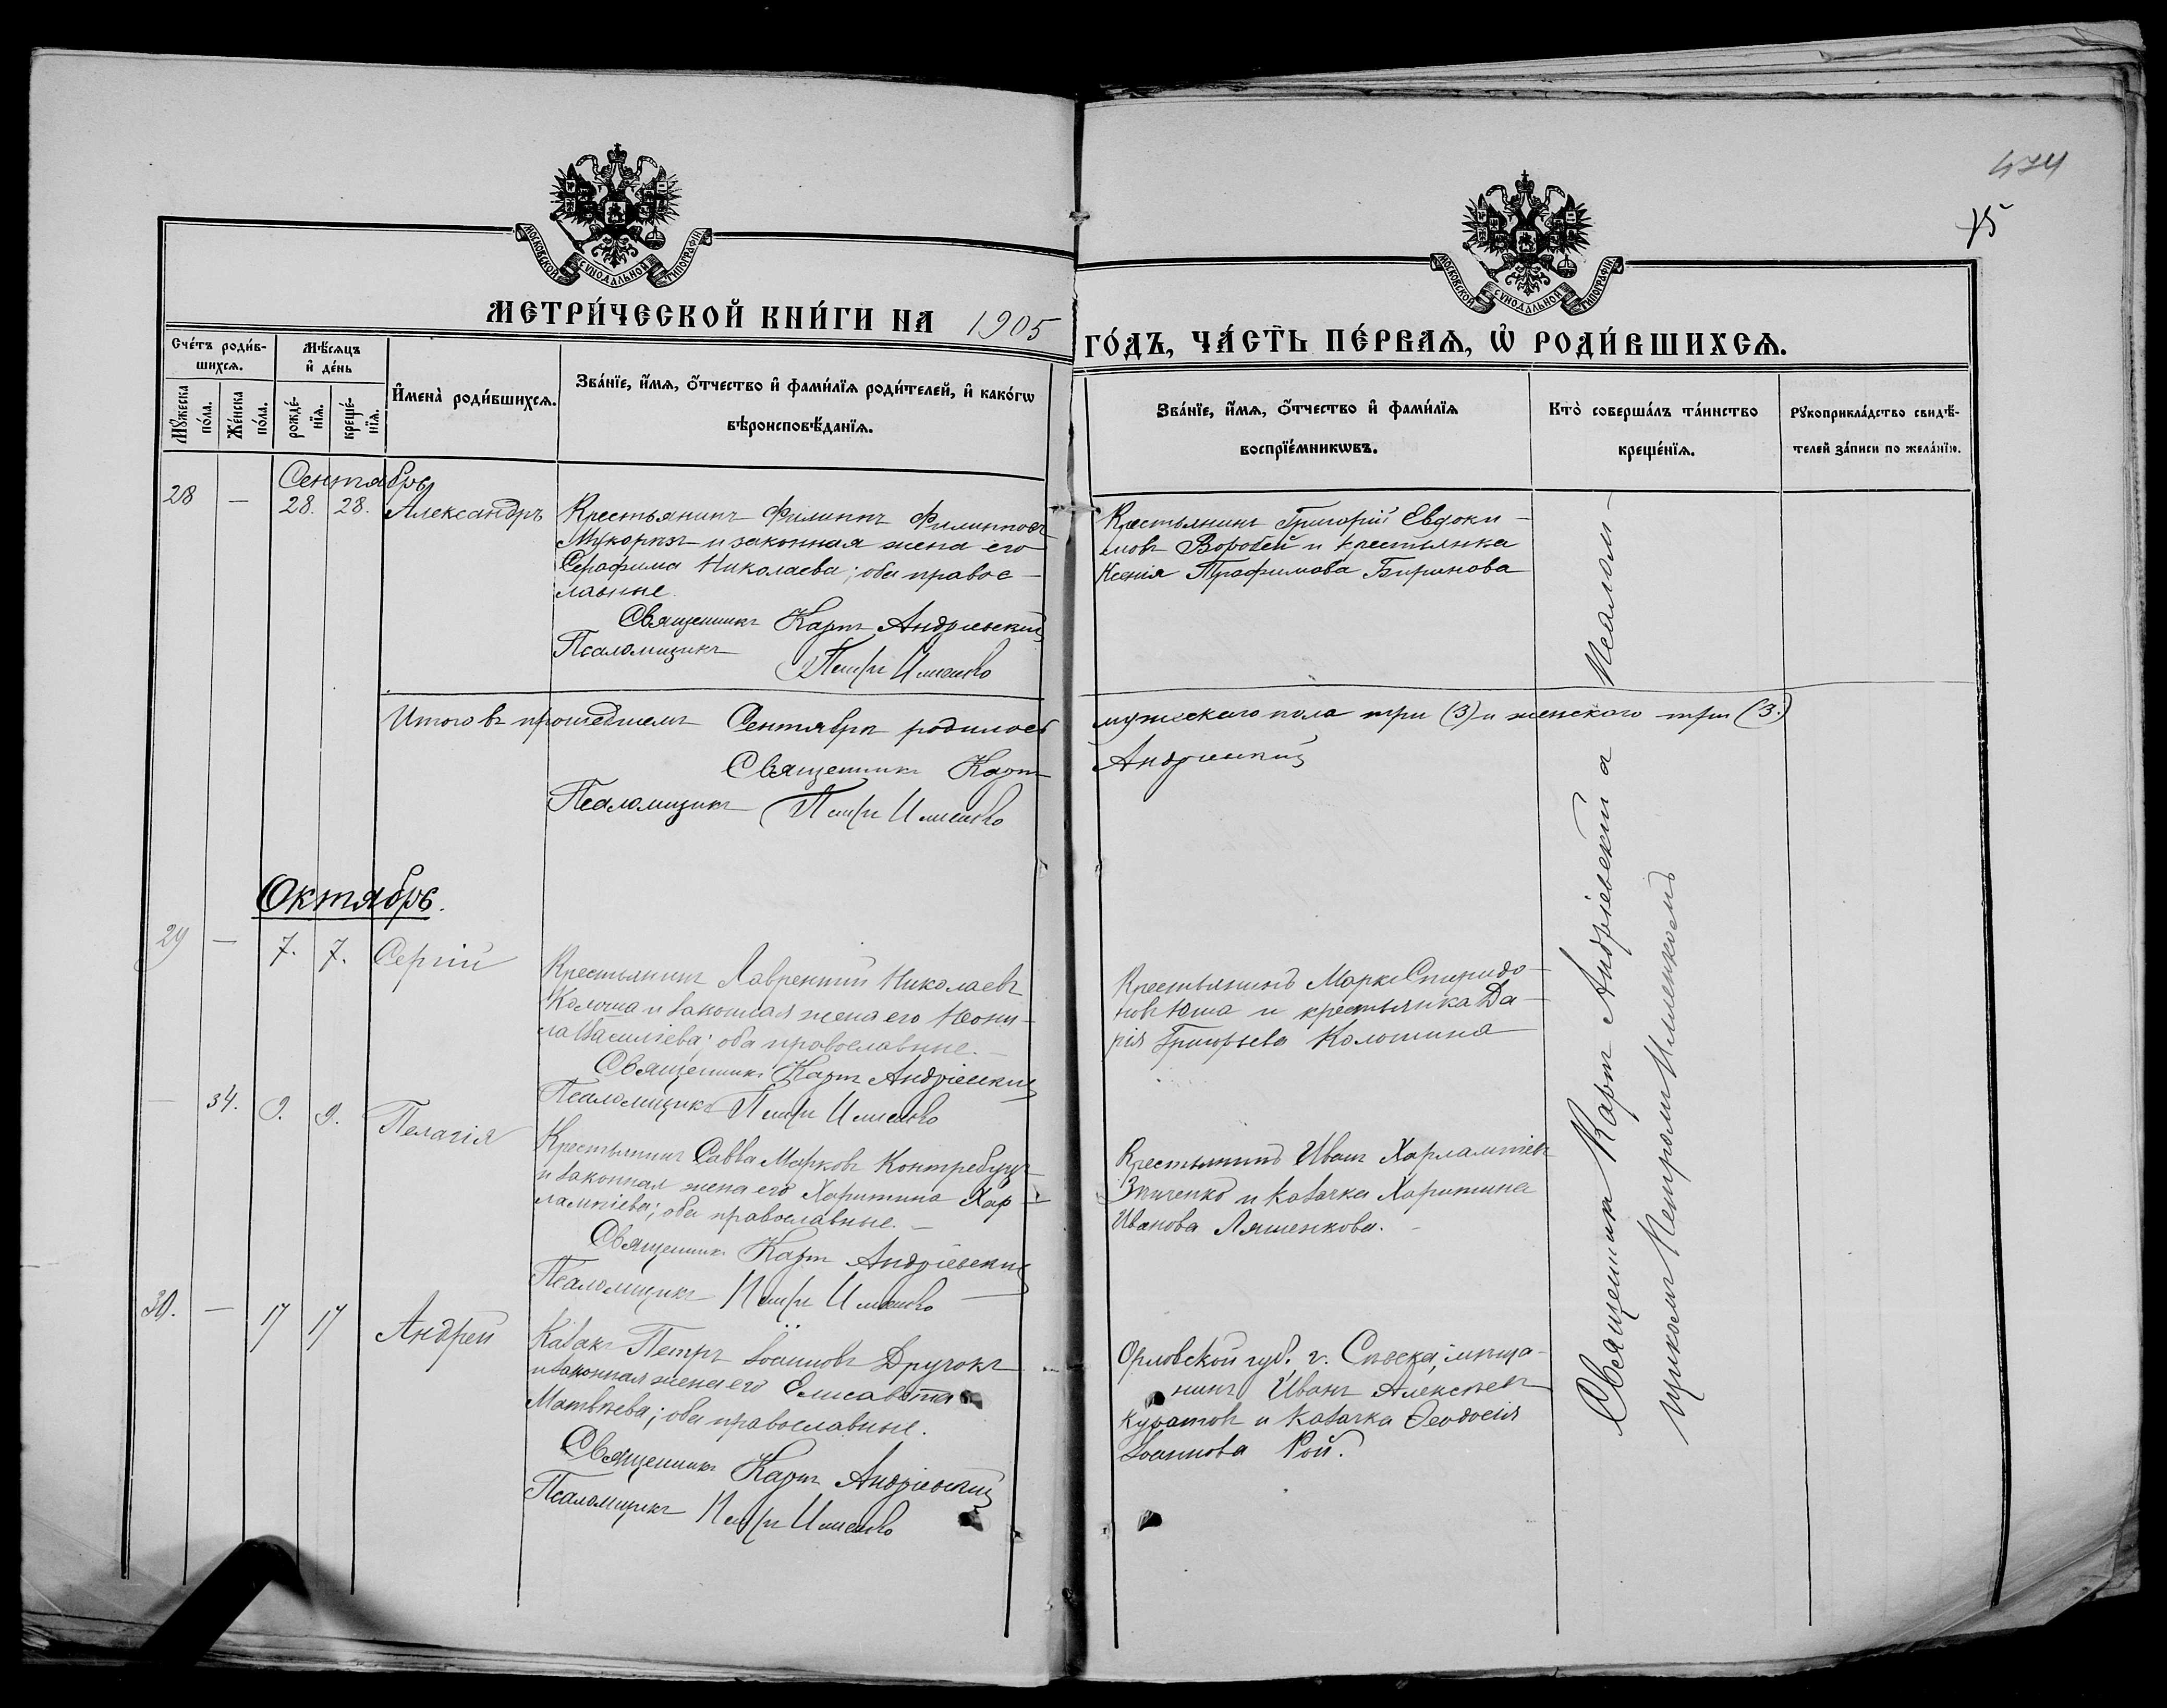 474
15
МОСКОВСКОЙ СѴНОДАЛЬНОЙ ТИПОГРАФІИ
МОСКОВСКОЙ СѴНОДАЛЬНОЙ ТИПОГРАФІИ
МЕТРИ́ЧЕСКОЙ КНИ́ГИ НА 1905
ГО́ДЪ, ЧА́СТЬ ПЕ́РВАЯ, Ѡ РОДИ́ВШИХСЯ.
Сче́тъ роди́в-
шихся.
Мꙋ́жеска по́ла.
Же́нска по́ла.
Мѣ́сяцъ и де́нь
рожде́-нїя.
креще́-нїя.
Имена̀ роди́вшихся.
Зва́нїе, и́мя, ѻ́тчество и фами́лїя роди́телей, и како́гѡ
вѣроисповѣ́данїя.
Зва́нїе, и́мя, ѻ́тчество и фами́лїя
воспрїе́мникѡвъ.
Кто̀ соверша́лъ та́инство
креще́нїя.
Рꙋкоприкла́дство свидѣ́-
телей за́писи по жела́нїю.
Сентябрь
28 — 28. 28. Александръ
Крестьянинъ Филиппъ Филипповъ
и законная жена его
Серафима Николаева; оба правос-
лавные.
Священникъ Карпъ Андріевскій
Псаломщикъ Петръ Ильенко
Крестьянинъ Григорій Евдоки-
мовъ Воробей и крестьянка
Ксенія Трофимова Бирюкова
Итого въ прошедшемъ Сентябрѣ родилось
мужескаго пола три (3) и женскаго три (3.)
Священникъ Карпъ
Андріевскій
Псаломщикъ Петръ Ильенко
Октябрь.
29 — 7. 7. Сергій
Крестьянинъ Лаврентій Николаевъ
Колоша и законная жена его Неони-
ла Василіева; оба православные.—
Священникъ Карпъ Андріевскій
Псаломщикъ Петръ Ильенко
Крестьянинъ Маркъ Спиридо-
новъ Юша и крестьянка Да-
рія Григорьева Колошина
— 34. 9. 9. Пелагія
Крестьянинъ Савва Марковъ Контребуцъ
и законная жена его Харитина Хар-
лампіева; оба православные.—
Священникъ Карпъ Андріевскій
Псаломщикъ Петръ Ильенко
Крестьянинъ Иванъ Харлампіевъ
Зинченко и козачка Харитина
Иванова Ляшенкова.
30. — 17 17 Андрей
Козакъ Петръ Іоанновъ Дручокъ
и законная жена его Елисавета
Матвѣева; оба православные.
Священникъ Карпъ Андріевскій
Псаломщикъ Петръ Ильенко
Орловской губ. г. Сѣвска, мѣща-
нинъ Иванъ Алексѣевъ
Куратовъ и козачка Ѳеодосія
Іоаннова Рой.
Священникъ Карпъ Андріевскій а Псалом-
щикомъ Петромъ Ильенкомъ